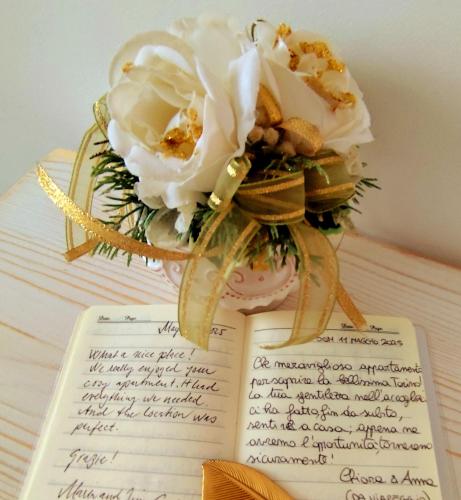 Date: Page:
May 2025
What a nice place!
We really enjoyed your
cozy apartment. It had
everything we needed
and the location was
perfect.
Grazie!
Date: Page:
DOM 11 MAGGIO 2025
Che meraviglioso appartamento
per scoprire la bellissima Torino!
La tua gentilezza nell'accoglier
ci ha fatto fin da subito,
sentire a casa; appena ne
avremo l'opportunità torneremo
sicuramente!
Chiara & Anna
(DA VIAREGGIO